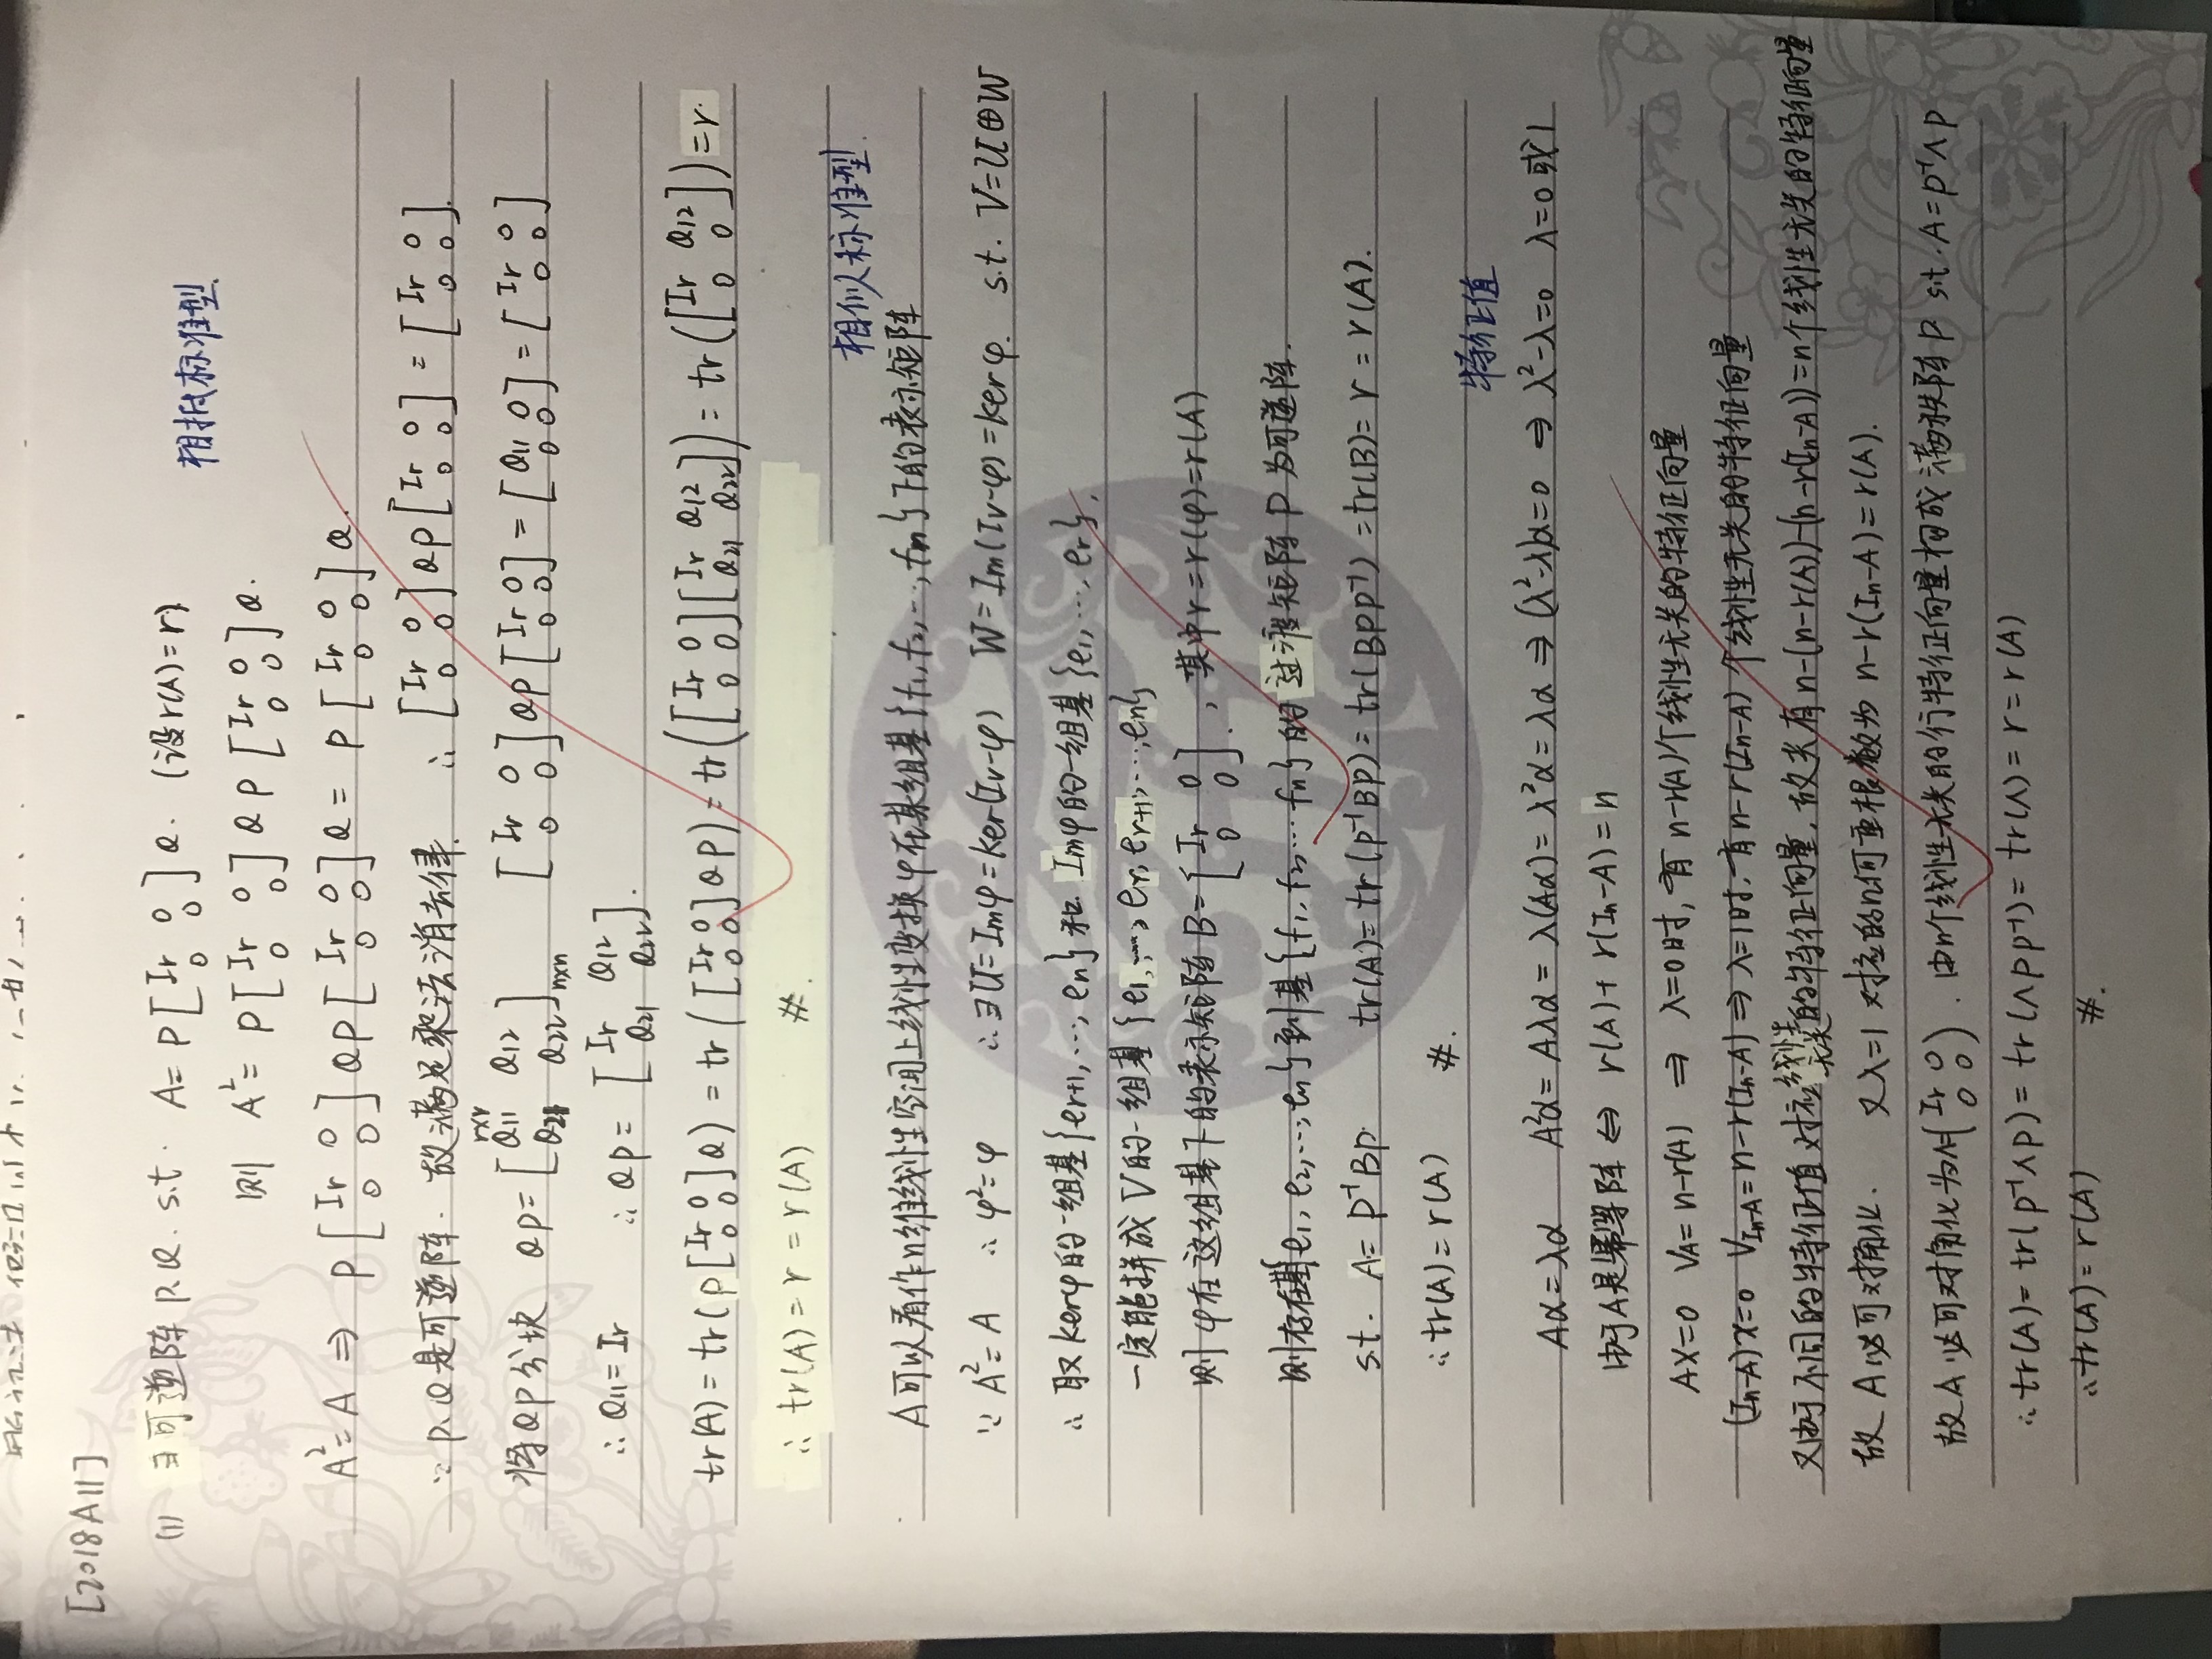 [2018A11]
相抵标准型
(1) ∃可逆阵P.Q. s.t. A=P[Ir 0; 0 0]Q. (设r(A)=r)
则 A²=P[Ir 0; 0 0]QP[Ir 0; 0 0]Q.
A²=A ⇒ P[Ir 0; 0 0]QP[Ir 0; 0 0]Q = P[Ir 0; 0 0]Q.
∵ P.Q是可逆阵. 故满足乘法消去律. ∴ [Ir 0; 0 0]QP[Ir 0; 0 0] = [Ir 0; 0 0].
将QP分块 QP=[Q11 Q12; Q21 Q22]n×n r×r [Ir 0; 0 0]QP[Ir 0; 0 0] = [Q11 0; 0 0] = [Ir 0; 0 0]
∴ Q11=Ir ∴ QP=[Ir Q12; Q21 Q22].
tr(A)=tr(P[Ir 0; 0 0]Q)=tr([Ir 0; 0 0]QP)=tr([Ir 0; 0 0][Ir Q12; Q21 Q22])=tr([Ir Q12; 0 0])=r.
∴ tr(A)=r=r(A) #.
相似标准型
A可以看作n维线性空间上线性变换φ在某组基{f1,f2,…,fn}下的表示矩阵
∵ A²=A ∴ φ²=φ ∴∃U=Imφ=Ker(Iv-φ) W=Im(Iv-φ)=Kerφ. s.t. V=U⊕W
∴ 取Kerφ的一组基{er+1,…,en}和Imφ的一组基{e1,…,er},
一定能拼成V的一组基{e1,…,er,er+1,…,en}
则φ在这组基下的表示矩阵B=[Ir 0; 0 0]., 其中r=r(φ)=r(A)
则存在基{e1,e2,…,en}到基{f1,f2,…fn}的过渡矩阵P为可逆阵.
s.t. A=P⁻¹BP. tr(A)=tr(P⁻¹BP)=tr(BPP⁻¹)=tr(B)=r=r(A).
∴ tr(A)=r(A) #.
特征值
Aα=λα A²α=Aλα=λ(Aα)=λ²α=λα ⇒ (λ²-λ)α=0 ⇒ λ²-λ=0 λ=0或1
由于A是幂等阵 ⇔ r(A)+r(In-A)=n
AX=0 VA=n-r(A) ⇒ λ=0时,有n-r(A)个线性无关的特征向量
(In-A)x=0 VIn-A=n-r(In-A) ⇒ λ=1时,有n-r(In-A)个线性无关的特征向量
又由于不同的特征值对应线性无关的特征向量,故共有n-(n-r(A))-(n-r(In-A))=n个线性无关的特征向量
故A必可对角化. 又λ=1对应的几何重根数为n-r(In-A)=r(A).
故A必可对角化为Λ[Ir 0; 0 0]. 由n个线性无关的行特征向量构成满秩阵P s.t. A=P⁻¹ΛP
∴ tr(A)=tr(P⁻¹ΛP)=tr(ΛPP⁻¹)=tr(Λ)=r=r(A)
∴ tr(A)=r(A) #.